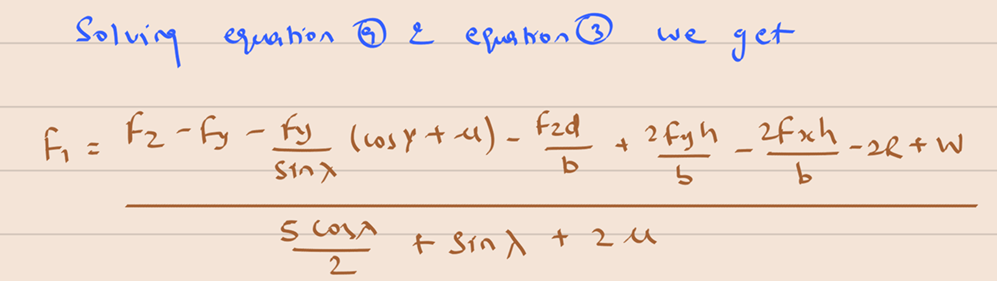 Solving equation ④ & equation ③ we get
F₁ = F₂ - Fy - Fy/sinλ (cosγ + μ) - F₂d/b + 2Fyh/b - 2Fxh/b - 2R + W
5 cosλ/2 + sinλ + 2μ